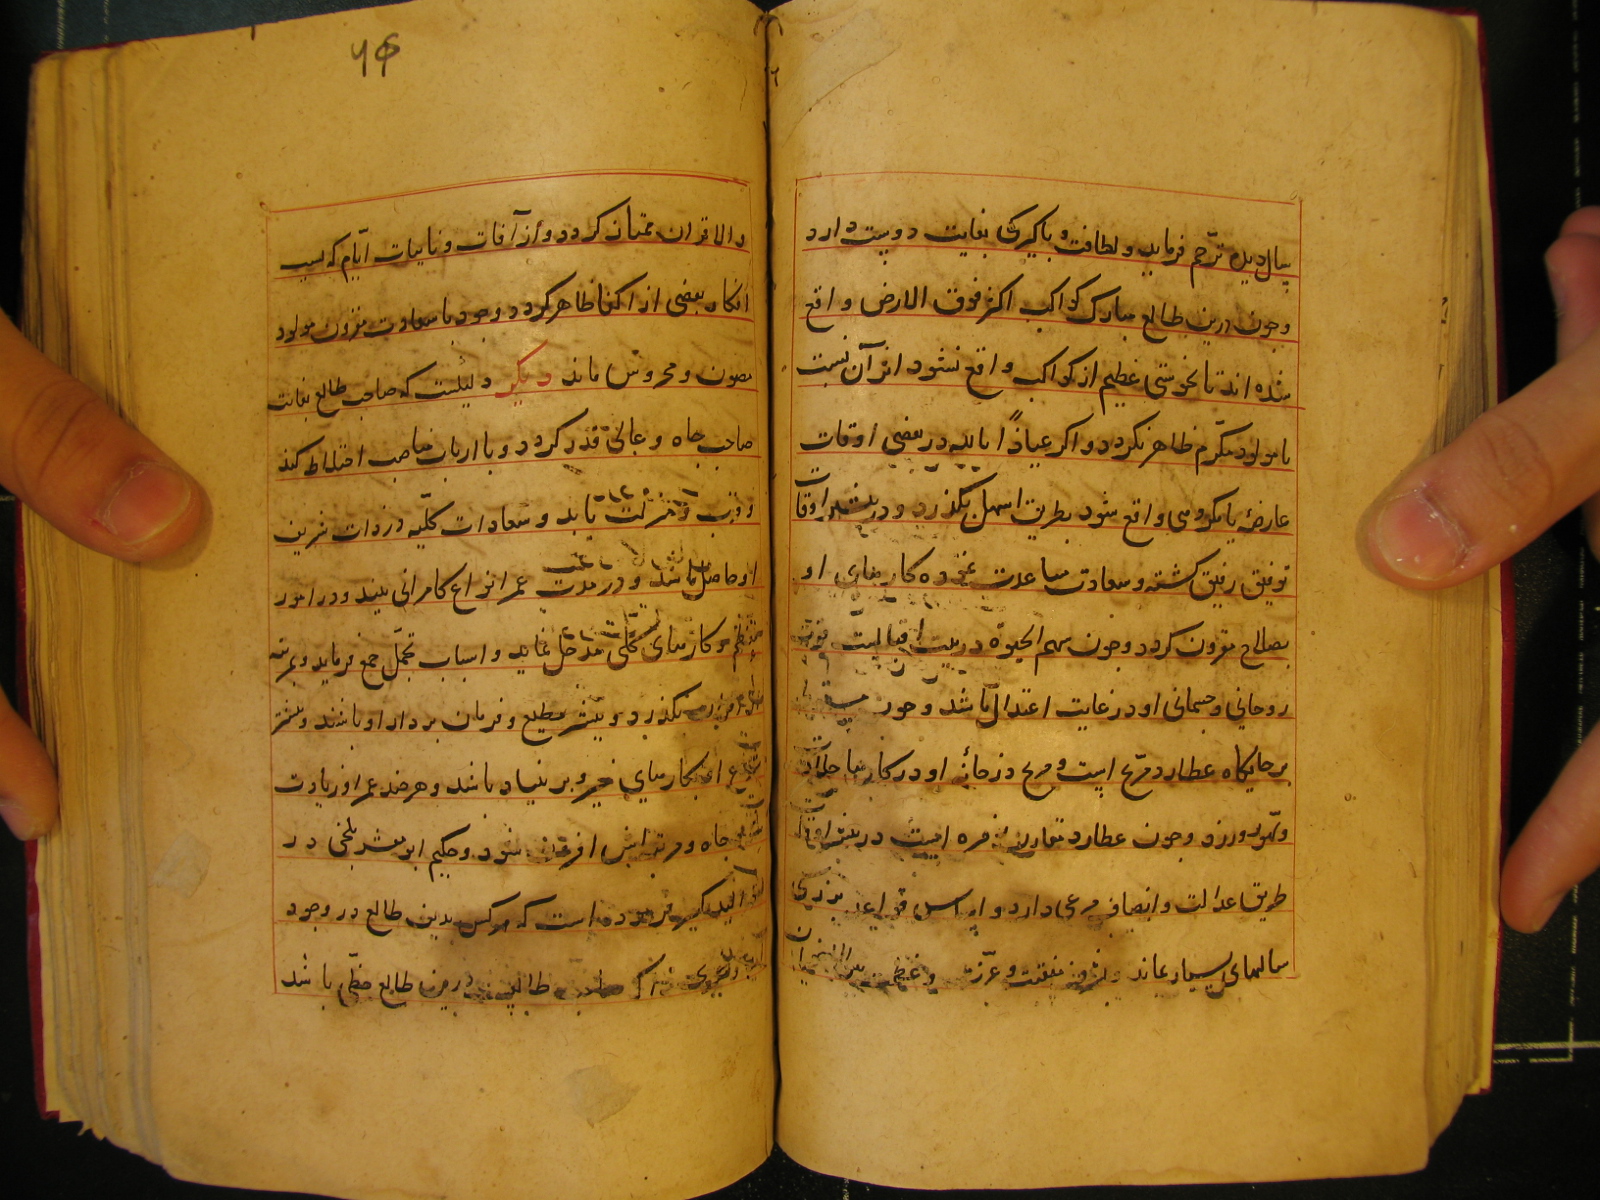 سال دیده ترحم فرماید و لطافت و پاکیزکی بغایت دوست دارد
و چون درین طالع مبارک کواکب اکثر فوق الارض واقع
شده اند تا نحوستی عظیم از کواکب واقع نشود از آن نسبت
با مولود مکرم ظاهر نکردد و اکر عیاذاً بالله در بعضی اوقات
عارضه یا مکروهی واقع شود بطریق اسهل بکذرد و در بیشتر اوقات
توفیق رفیق کشته و سعادت مساعدت نموده کارهای او
بصلاح مقرون کردد و چون سهم الحیوة در بیت اقبالیست قوت
روحانی و جسمانی او در غایت اعتدال باشد و چون
بر جایکاه عطارد مریخ است و مریخ در خانهٔ او در کارها جلد
و تهور ورزد و چون عطارد مقارن زهره است در بیشتر اوقات
طریق عدالت و انصاف مرعی دارد و اساس قواعد بزرکی
سالهای بسیار بماند و عزت و عظمت بین الاقران
و الاقران ممتاز کردد و از آفات و نایبات ایام که بسبب
انکار بعضی از اکفا ظاهر کردد وجود با سعادت مقرون مولود
مصون و محروس ماند دیکر دلیلست که صاحب طالع بغایت
صاحب جاه و عالی قدر کردد و با ارباب مناصب اختلاط کند
و قرب و منزلت یابد و سعادات کلیه در ذات شریف
او حاصل باشد و در مدت عمر انواع کامرانی بیند و در امور
معظم و کارهای کلی مدخل نماید و اسباب تجمل جمع فرماید و بمرتبه
نکذرد و بیشتر مطیع و فرمان بردار او باشند و بیشتر
او بکارهای خیر و بر بنیاد باشد و هر چند عمر او زیادت
جاه و مرتبه اش افزون شود و حکیم ابو معشر بلخی در
کبیر فرموده است که هر کس بدین طالع در وجود
صاحب طالب درین طالع حظی باشد
۵۶